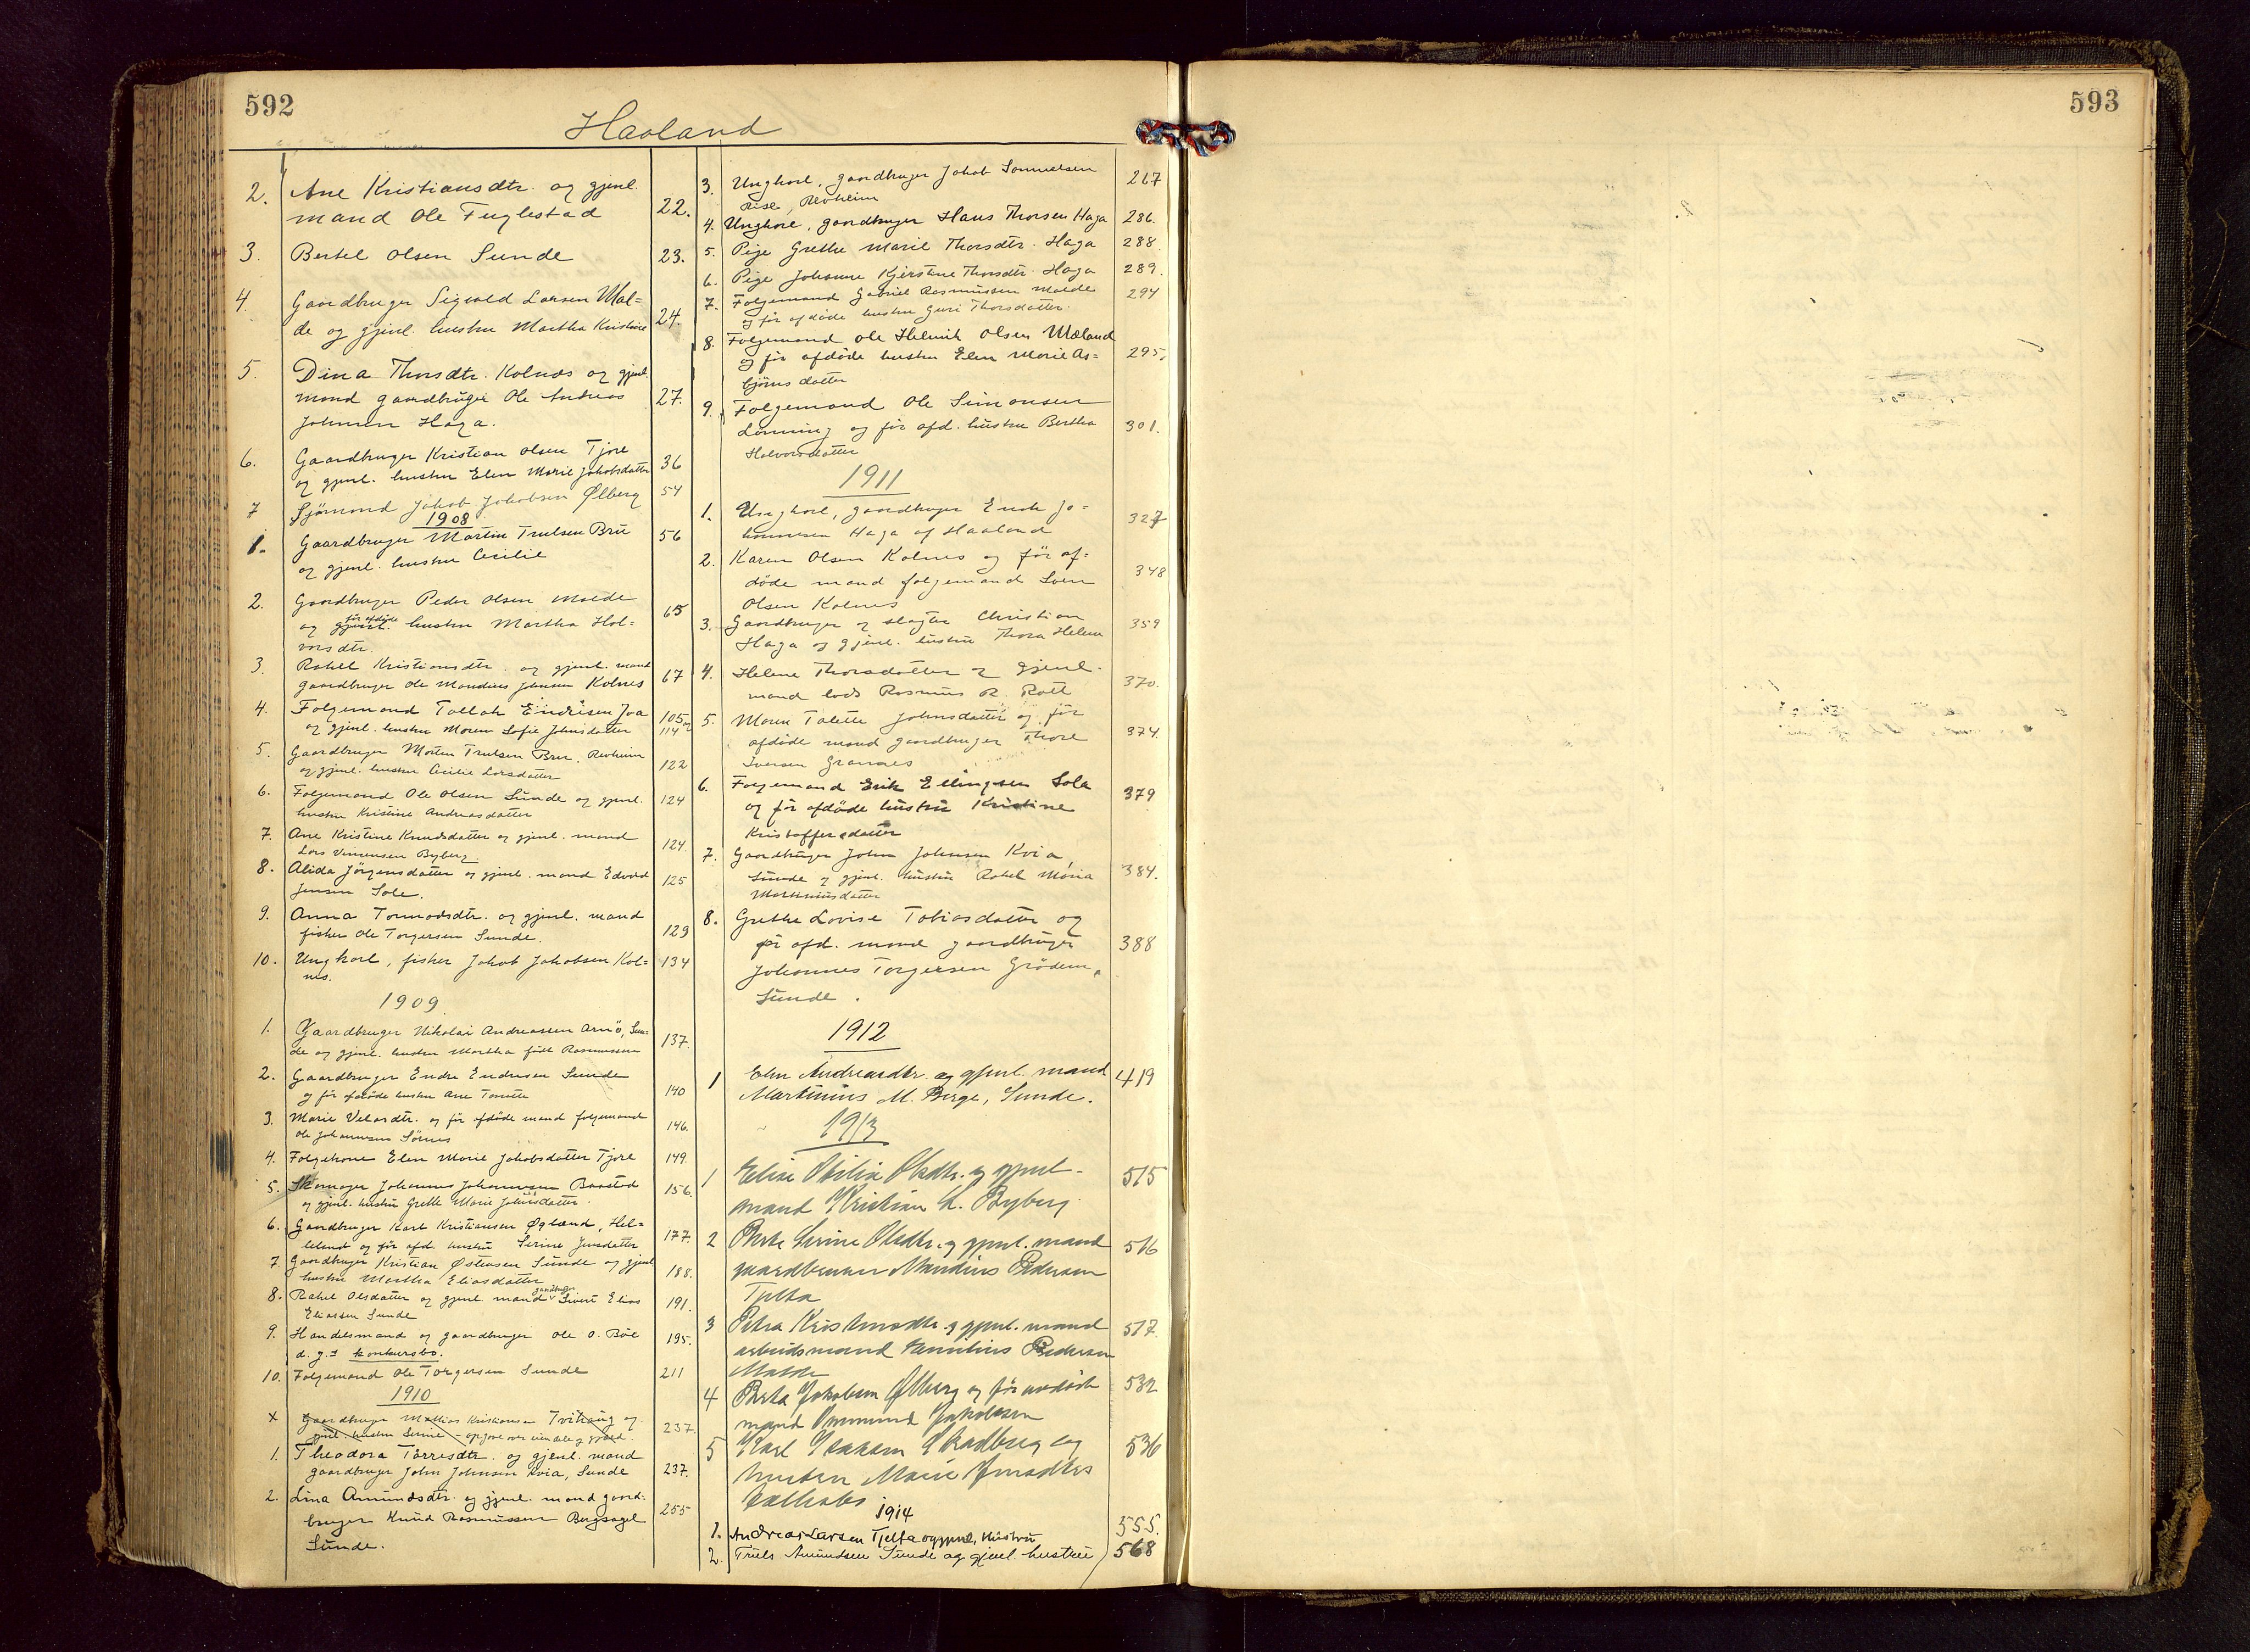 592
Haaland
2. Ane Kristiansdtr. og gjenl.
mand Ole Fuglestad 22.
3. Bertel Olsen Sunde 23.
4. Gaardbruger Sigvald Larsen Mal=
de og gjenl. hustru Martha Kristine 24.
5. Dina Thorsdtr. Kolnes og gjenl.
mand gaardbruger Ole Andreas 27.
Johnsen Haga.
6. Gaardbruger Kristian Olsen Tjore
og gjenl. hustru Elen Marie Jakobsdatter 36
7 Sjömand Jakob Jakobsen Ølberg 54
1908
1. Gaardbruger Martin Truelsen Bru 56
og gjenl. hustru Cecilie
2. Gaardbruger Peder Olsen Malde
og gjenl. før afdöde hustru Martha Hal= 65
vorsdtr.
3. Rakel Kristiansdtr. og gjenl. mand
gaardbruger Ole Mandius Jensen Kolnes 67
4. Folgemand Tollak Endresen Joa 105 og
og gjenl. hustru Maren Sofie Johnsdatter 114
5. Gaardbruger Morten Truelsen Bru, Revheim
og gjenl. hustru Cecilie Larsdatter 122
6. Folgemand Ole Olsen Sunde og gjenl. 124
hustru Kristine Andreasdatter
7. Ane Kristine Knudsdatter og gjenl. mand
Lars Byberg 124.
8. Alida Jörgensdatter og gjenl. mand Edvard
Jensen Sole. 125
9. Anna Tormodsdtr. og gjenl. mand
fisker Ole Torgersen Sunde. 129
10. Ungkarl, fisker Jakob Jakobsen Kol= 134
nes.
1909
1. Gaardbruger Nikolai Andreassen Arnö, Sun=
de og gjenl. hustru Martha född Rasmussen 137.
2. Gaardbruger Endre Endresen Sunde
og för afdöde hustru Ane Tonette 140
3. Marie Velardtr. og för afdöde mand folgemand
Ole Johannesen Sörnes 146.
4. Folgekone Elen Marie Jakobsdatter Tjore 149.
5. Skomager Johannes Johannesen Braastad
og gjenl. hustru Grethe Marie Johnsdatter. 156.
6. Gaardbruger Karl Kristiansen Øgland, Hel=
leland og för afd. hustru Serine Jensdatter 177.
7. Gaardbruger Kristian Østensen Sunde og gjenl
hustru Martha Eliasdatter 188.
8. Rakel Olsdatter og gjenl. mand gaardbruger Sivert Elias
Eliassen Sunde 191.
9. Handelsmand og gaardbruger Ole O. Böe 195.
d. g. s konkursbo.
10. Folgemand Ole Torgersen Sunde 211
1910
x Gaardbruger Mathias Kristiansen Tvihaug og
gjenl. hustru Serine - 237.
1. Theodora Törresdtr. og gjenl. mand
gaardbruger John Johnsen Kvia, Sunde 237.
2. Lina Amundsdtr. og gjenl. mand gaard-
bruger Knud Rasmussen Bergsagel 255
Sunde.
3. Ungkarl, gaardbruger Jakob Samuelsen 267
Risa, Revheim
4. Ungkarl, gaardbruger Hans Thorsen Haga 286.
5. Pige Grethe Marie Thorsdtr. Haga 288.
6. Pige Johanne Kjerstine Thorsdtr. Haga 289.
7. Folgemand Gabriel Rasmussen Malde 294
og för afdöde hustru Guri Thorsdatter.
8. Folgemand Ole Helmik Olsen Mæland
og för afdöde hustru Elen Marie As= 295.
björnsdatter
9. Folgemand Ole Simonsen
Lönning og för afd. hustru Bertha 301.
Halvorsdatter
1911
1. Ungkarl, gaardbruger Enok Jo= 327
hannesen Haga af Haaland
2. Karen Olsen Kolnes og för af=
döde mand folgemand Sven 348
Olsen Kolnes
3. Gaardbruger og slagter Christian 359
Haga og gjenl. hustru Thora Helene
4. Helene Thorsdatter og gjenl.
mand lods Rasmus R. Rott 370.
5. Maren Talette Johnsdatter og för
afdöde mand gaardbruger Thore 374.
Iversen Grannes
6. Folgemand Erik Ellingsen Sola 379
og för afdöde hustru Kristine
Kristoffersdatter
7. Gaardbruger John Johnsen Kvia,
Sunde og gjenl. hustru Rakel Maria 384.
Martiniusdatter
8. Grethe Lovise Tobiasdatter og
för afd. mand gaardbruger 388
Johannes Torgersen Grödem,
Sunde.
1912
1 Elen Andreasdtr. og gjenl. mand 419
Martinius M. Berge, Sunde.
1913
1 Elise Otilie Olsdtr. og gjenl. 515
mand Kristian L. Byberg.
2 Berta Serine Olsdtr. og gjenl. mand 516
gaardbruker Mandius Pedersen
Tjelta
3 Petra Kristensdtr. og gjenl. mand 517.
arbeidsmand Pedersen
Malde
4 Berta Jakobsen Ølberg og för avdöde 532
mand Ommund Jakobsen
5 Karl Isaksen Skadberg og 536
hustru Marie
fælesbo
1914
1. Andreas Larsen Tjelta og gjenl. Hustru 555.
2. Truls Amundsen Sunde og gjenl. hustru 568
593